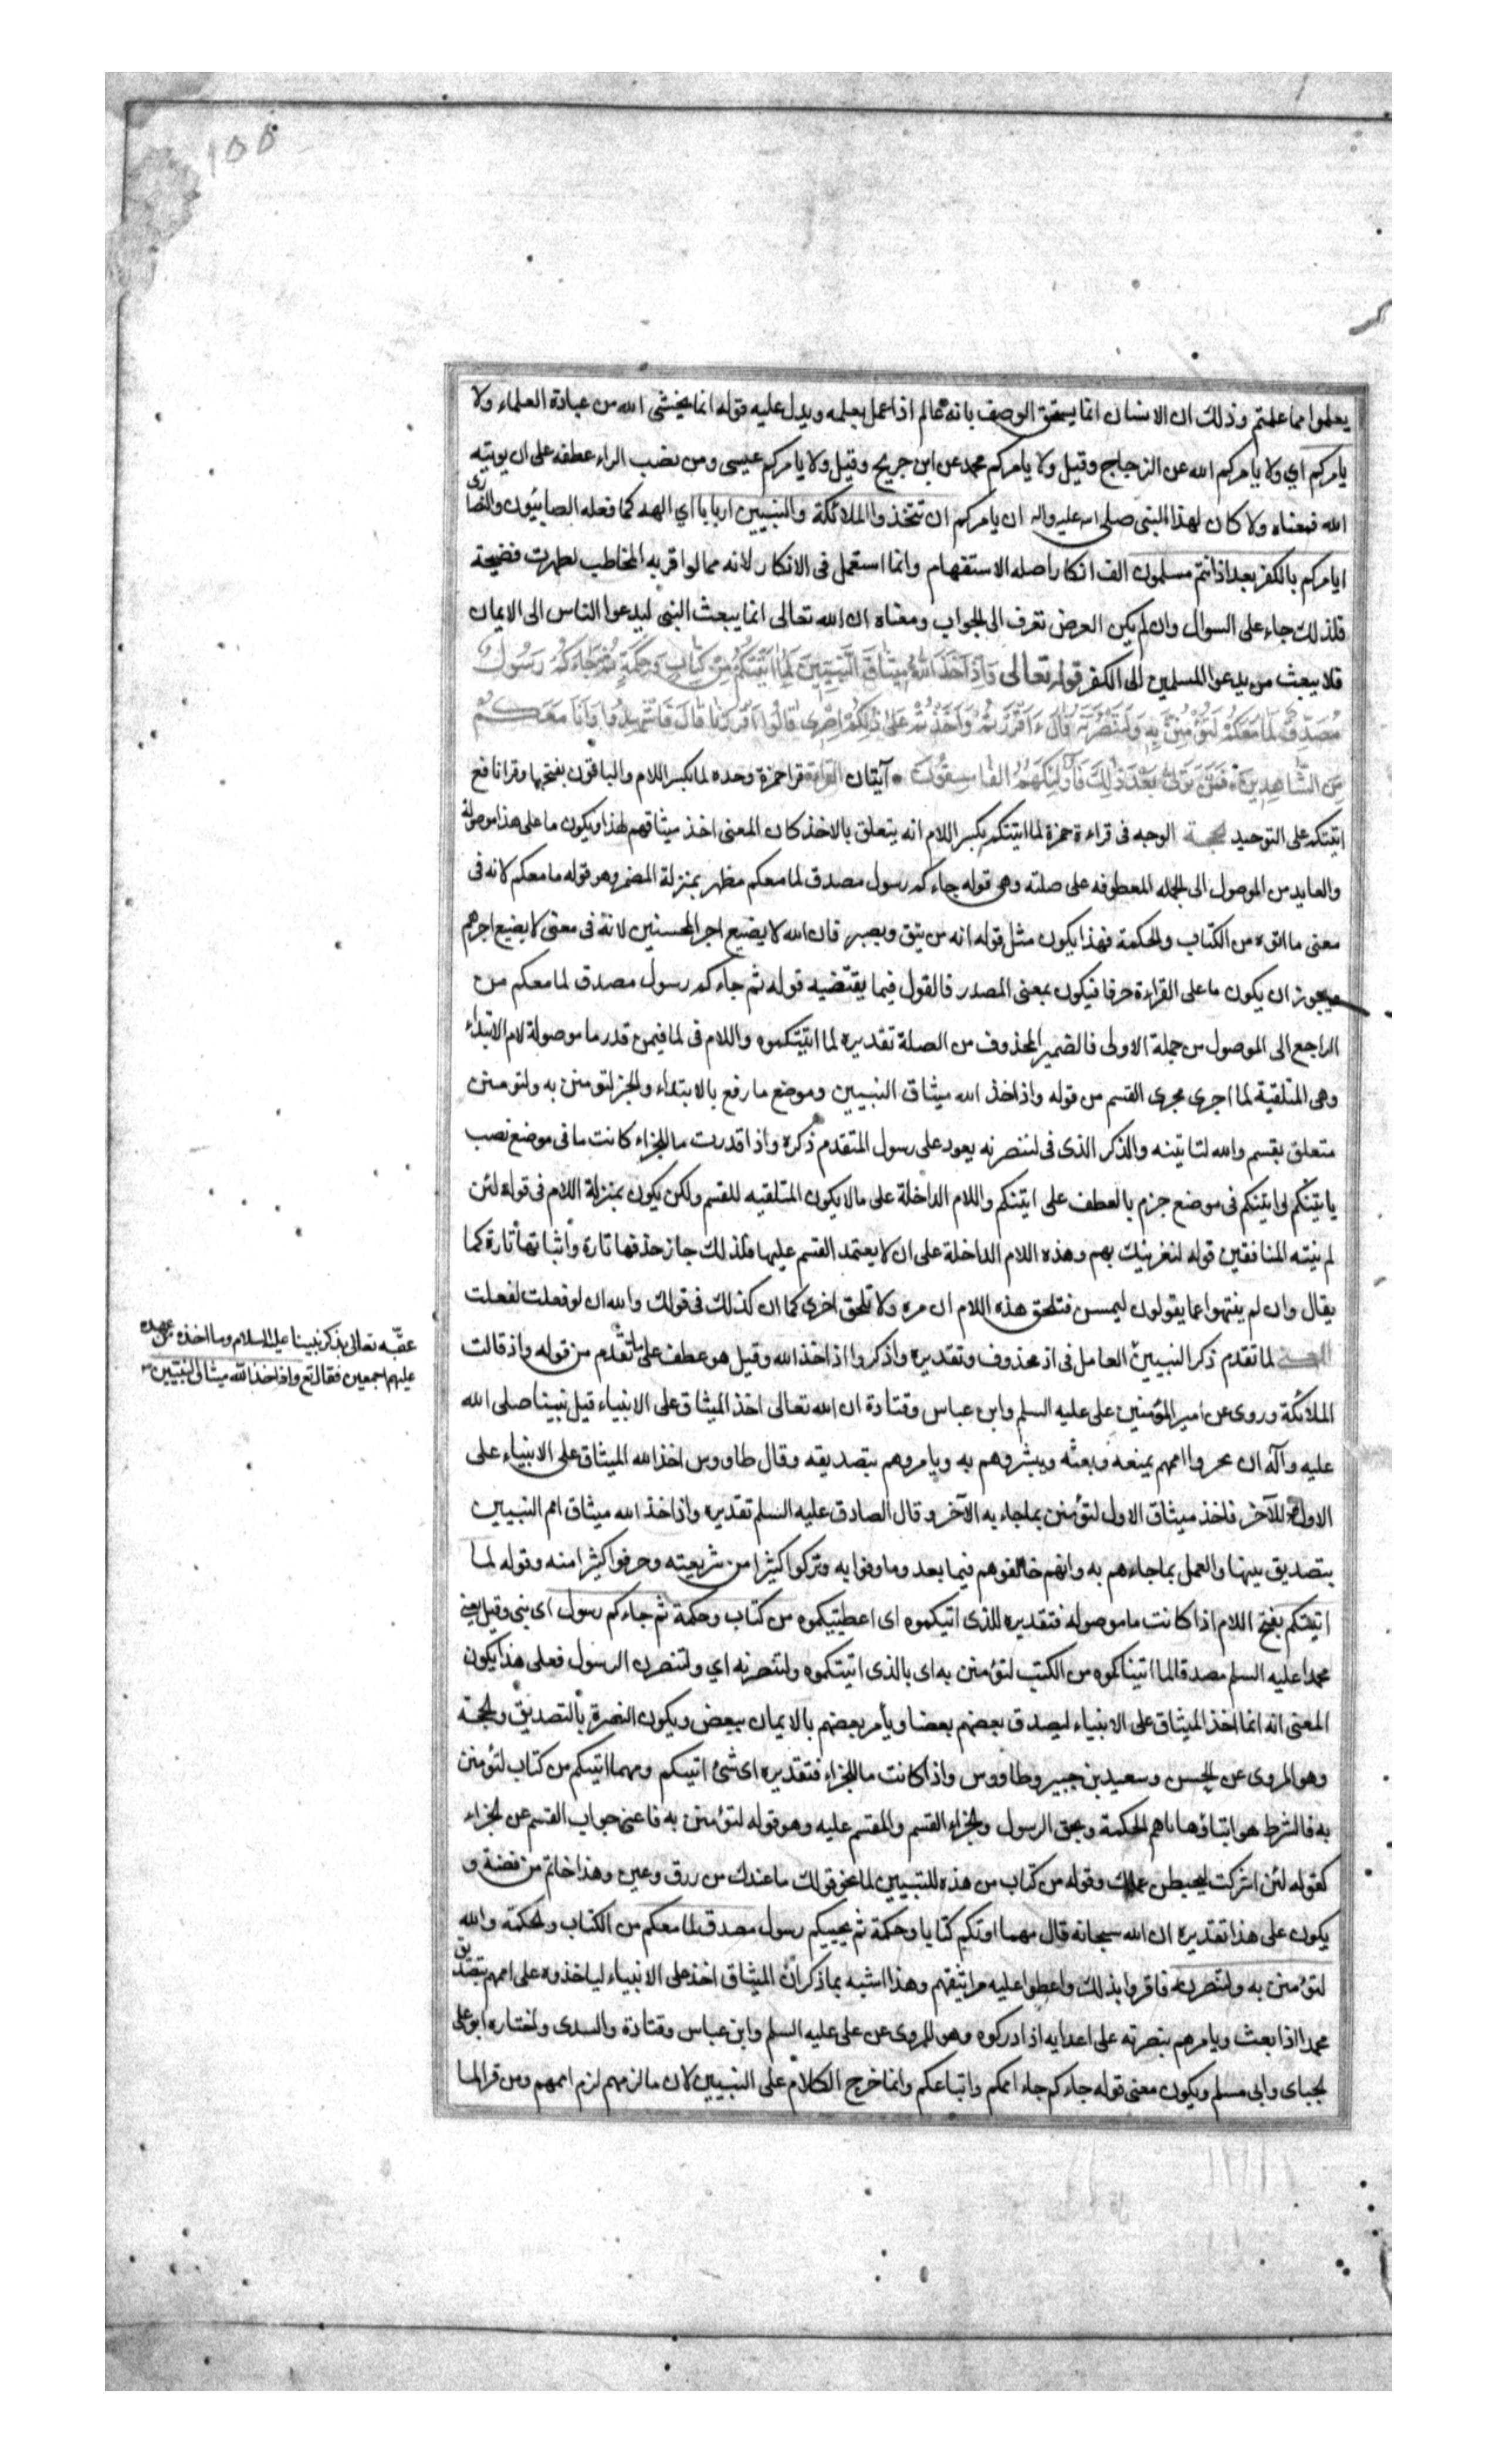 ١٥٥
يعلموا مما علمتم وذلك ان الانسان انما يستحق الوصف بانه عالم اذا عمل بعلمه ويدل عليه قوله انما يخشى الله من عبادة العلماء ولا
يامركم اي ولا يامركم الله عن الزجاج وقيل ولا يامركم محمد عن ابن جريح وقيل ولا يامركم عيسى ومن نصب الراء عطفه على ان يوتيه
الله فمعناه ولا كان لهذا النبى صلى الله عليه واله ان يامركم ان تتخذوا الملائكة والنبيين اربابا اي الهه كما فعله الصابئون والنصارى
ايامركم بالكفر بعد اذ انتم مسلمون الف انكار اصله الاستفهام وانما استعمل فى الانكار لانه مما لو اقربه المخاطب لظهرت فضيحته
فلذلك جاء على السوال وان لم يكن الغرض تعرف الى الجواب ومعناه ان الله تعالى انما يبعث النبى ليدعوا الناس الى الايمان
فلا يبعث من يدعوا المسلمين الى الكفر قوله تعالى وَاِذْ اَخَذَ اللهُ مِيثَاقَ النَّبِيّينَ لَمَا اتَيْتُكُمْ مِنْ كِتَابٍ وَحِكْمَةٍ ثُمَّ جَاءَكُمْ رَسُولٌ
مُصَدِّقٌ لِمَا مَعَكُمْ لَتُؤْمِنُنَّ بِهِ وَلَتَنْصُرُنَّهُ قَالَ ءَاَقْرَرْتُمْ وَاَخَذْتُمْ عَلى ذلِكُمْ اِصْرِى قَالُوا اَقْرَرْنَا قَالَ فَاشْهَدُوا وَاَنَا مَعَكُمْ
مِنَ الشَّاهِدِينَ فَمَنْ تَوَلّى بَعْدَ ذلِكَ فَاُولئِكَ هُمُ الفَاسِقُونَ آيتان القراءة قرا حمزة وحده لما بكسر اللام والباقون بفتحها وقرا نافع
اتيتكم على التوحيد الحجة الوجه فى قراءة حمزة لما اتيتكم بكسر اللام انه يتعلق بالاخذ كان المعنى اخذ ميثاقهم لهذا ويكون ما على هذا موصولة
والعايد من الموصول الى الجمله المعطوفه على صلته وهى قوله جاءكم رسول مصدق لما معكم مظهر بمنزلة المضمر وهو قوله ما معكم لانه فى
معنى ما اتوه من الكتاب والحكمة فهذا يكون مثل قوله انه من يتق ويصبر فان الله لا يضيع اجر المحسنين لانه فى معنى لا يضيع اجرهم
ويجوز ان يكون ما على القراءة حرفا فيكون بمعنى المصدر فالقول فيما يقتضيه قوله ثم جاءكم رسول مصدق لما معكم من
الراجع الى الموصول من جملة الاولى فالضمير المحذوف من الصلة تقديره لما اتيتكموه واللام فى لما فيمن قدر ما موصولة لام الابتداء
وهى المتلقية لما اجرى مجرى القسم من قوله واذ اخذ الله ميثاق النبيين وموضع ما رفع بالابتداء والخبر لتومنن به ولتومنن
متعلق بقسم والله لتاتينه والذكر الذى فى لتنصرنه يعود على رسول المتقدم ذكره واذا قدرت ما للجزاء كانت ما فى موضع نصب
باتيتكم واتيتكم فى موضع جزم بالعطف على اتيتكم واللام الداخلة على ما لا يكون المتلقيه للقسم ولكن يكون بمنزلة اللام فى قوله لئن
لم ينته المنافقين قوله لنغرينك بهم وهذه اللام الداخلة على ان لا يعتمد القسم عليها فلذلك جاز حذفها تارة واثباتها تارة كما
يقال وان لم ينتهوا عما يقولون ليمسن فتلحق هذه اللام ان مره ولا تلحق اخرى كما ان كذلك فى قولك والله ان لو فعلت لفعلت
المعنى لما تقدم ذكر النبيين العامل فى اذ محذوف وتقديره واذكروا اذ اخذ الله وقيل هو عطف على ما تقدم من قوله واذ قالت
الملائكة وروى عن امير المؤمنين على عليه السلم وابن عباس وقتادة ان الله تعالى اخذ الميثاق على الانبياء قبل نبينا صلى الله
عليه وآله ان اممهم وبعثه ويبشروهم به ويامروهم بتصديقه وقال طاووس اخذ الله الميثاق على الانبياء على
الاول للآخر فاخذ ميثاق الاول لتؤمنن بما جاء به الآخر وقال الصادق عليه السلم تقديره واذ اخذ الله ميثاق امم النبيين
بتصديق نبيها والعمل بما جاءهم به وانهم خالفوهم فيما بعد وما وفوا به وتركوا كثيرا من شريعته وحرفوا كثيرا منه وقوله لما
اتيتكم بفتح اللام اذا كانت ما موصوله فتقديره للذى اتيتكموه اى اعطيتكموه من كتاب وحكمة ثم جاءكم رسول اى نبى وقيل يعنى
محمدا عليه السلم مصدقا لما اتيناكموه من الكتب لتؤمنن به اى بالذى اتيتكموه ولتنصرنه اي ولتنصرن الرسول فعلى هذا يكون
المعنى انه انما اخذ الميثاق على الانبياء ليصدق بعضهم بعضا ويأمر بعضهم بالايمان ببعض ويكون النصرة بالتصديق والحجة
وهو المروى عن الحسن وسعيد بن جبير وطاووس واذا كانت ما للجزاء فتقديره اى شئ اتيتكم ومهما اتيتكم من كتاب لتؤمنن
به فالشرط هو ايتاؤها اياهم الحكمة ومجئ الرسول والجزاء القسم والمقسم عليه وهو قوله لتؤمنن به فاغنى جواب القسم عن الجزاء
كقوله لئن اشركت ليحبطن عملك وقوله من كتاب من هذه للتبيين لما نحو قولك ما عندك من ورق وعين وهذا خاتم من فضة و
يكون على هذا تقديره ان الله سبحانه قال مهما اوتكم كتابا وحكمة ثم يجيبكم رسول مصدق لما معكم من الكتاب والحكمة والله
لتؤمنن به ولتنصرنه فاقروا بذلك واعطوا عليه مواثيقهم وهذا اشبه بما ذكر ان الميثاق اخذ على الانبياء لياخذوه على اممهم بتصديق
محمد اذا بعث ويامرهم بنصرته على اعدايه اذا ادركوه وهو المروى عن على عليه السلم وابن عباس وقتادة والسدى واختاره ابو على
الجباى وابى مسلم ويكون معنى قوله جاءكم جاء اممكم واتباعكم وانما خرج الكلام على النبيين لان ما لزمهم لزم اممهم ومن قرا لما
عقبه تعالى بذكر نبينا عليه السلام وما اخذه من عهده
عليهم اجمعين فقال تع واذ اخذ الله ميثاق النبيين